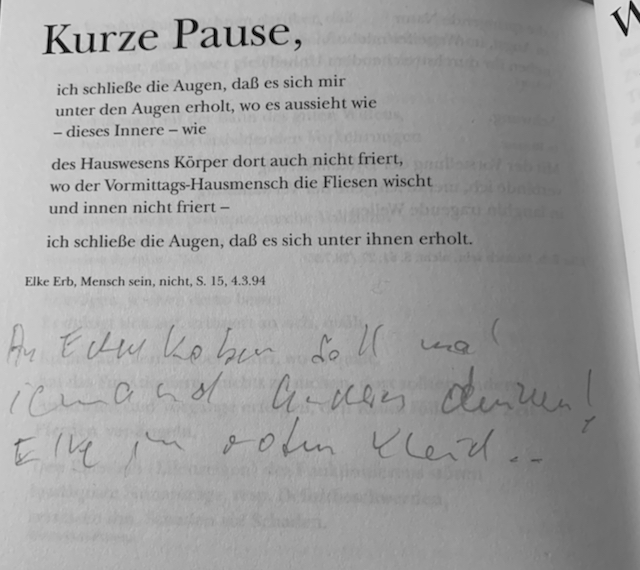 Kurze Pause,
ich schließe die Augen, daß es sich mir
unter den Augen erholt, wo es aussieht wie
– dieses Innere – wie
des Hauswesens Körper dort auch nicht friert,
wo der Vormittags-Hausmensch die Fliesen wischt
und innen nicht friert –
ich schließe die Augen, daß es sich unter ihnen erholt.
Elke Erb, Mensch sein, nicht, S. 15, 4.3.94
An soll
jemand anders denken!
Elke im roten Kleid..
W